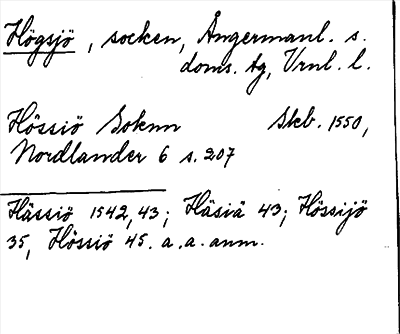 Högsjö, socken, Ångermanl. s.
doms. tg, Vrnl. l.
Hössiö Soknn Skb. 1550,
Nordlander 6 s. 207
Hässiö 1542, 43; Häsiä 43; Hössijö
35, Hössiö 45. a. a. anm.